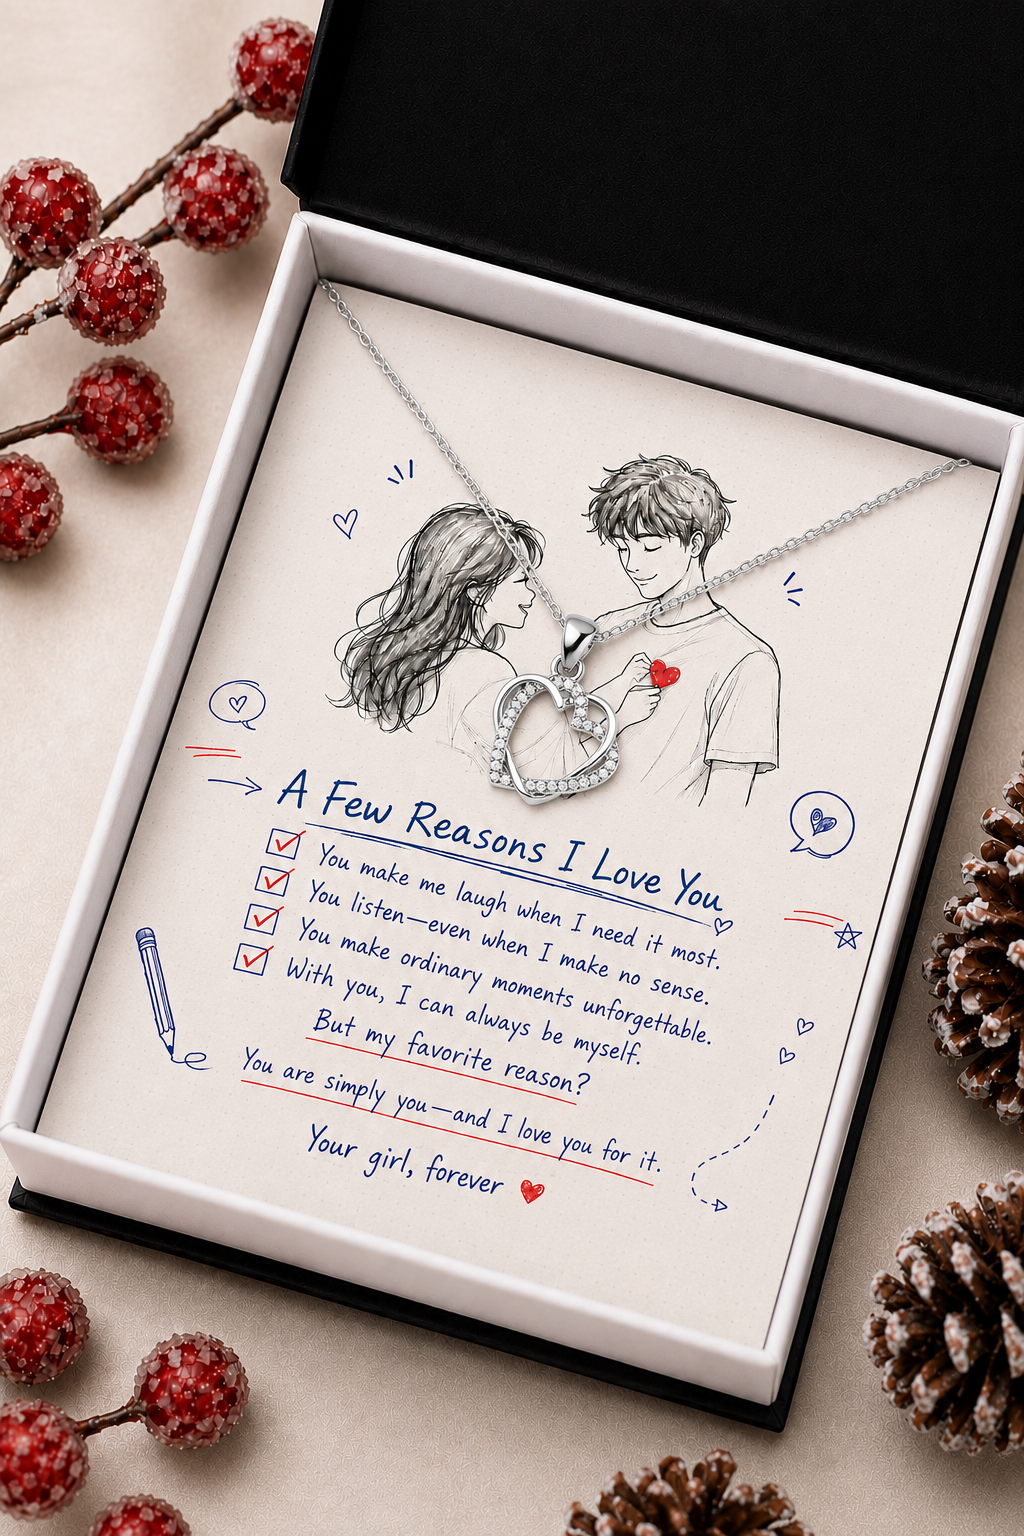 A Few Reasons I Love You
You make me laugh when I need it most.
You listen—even when I make no sense.
You make ordinary moments unforgettable.
With you, I can always be myself.
But my favorite reason?
You are simply you—and I love you for it.
Your girl, forever